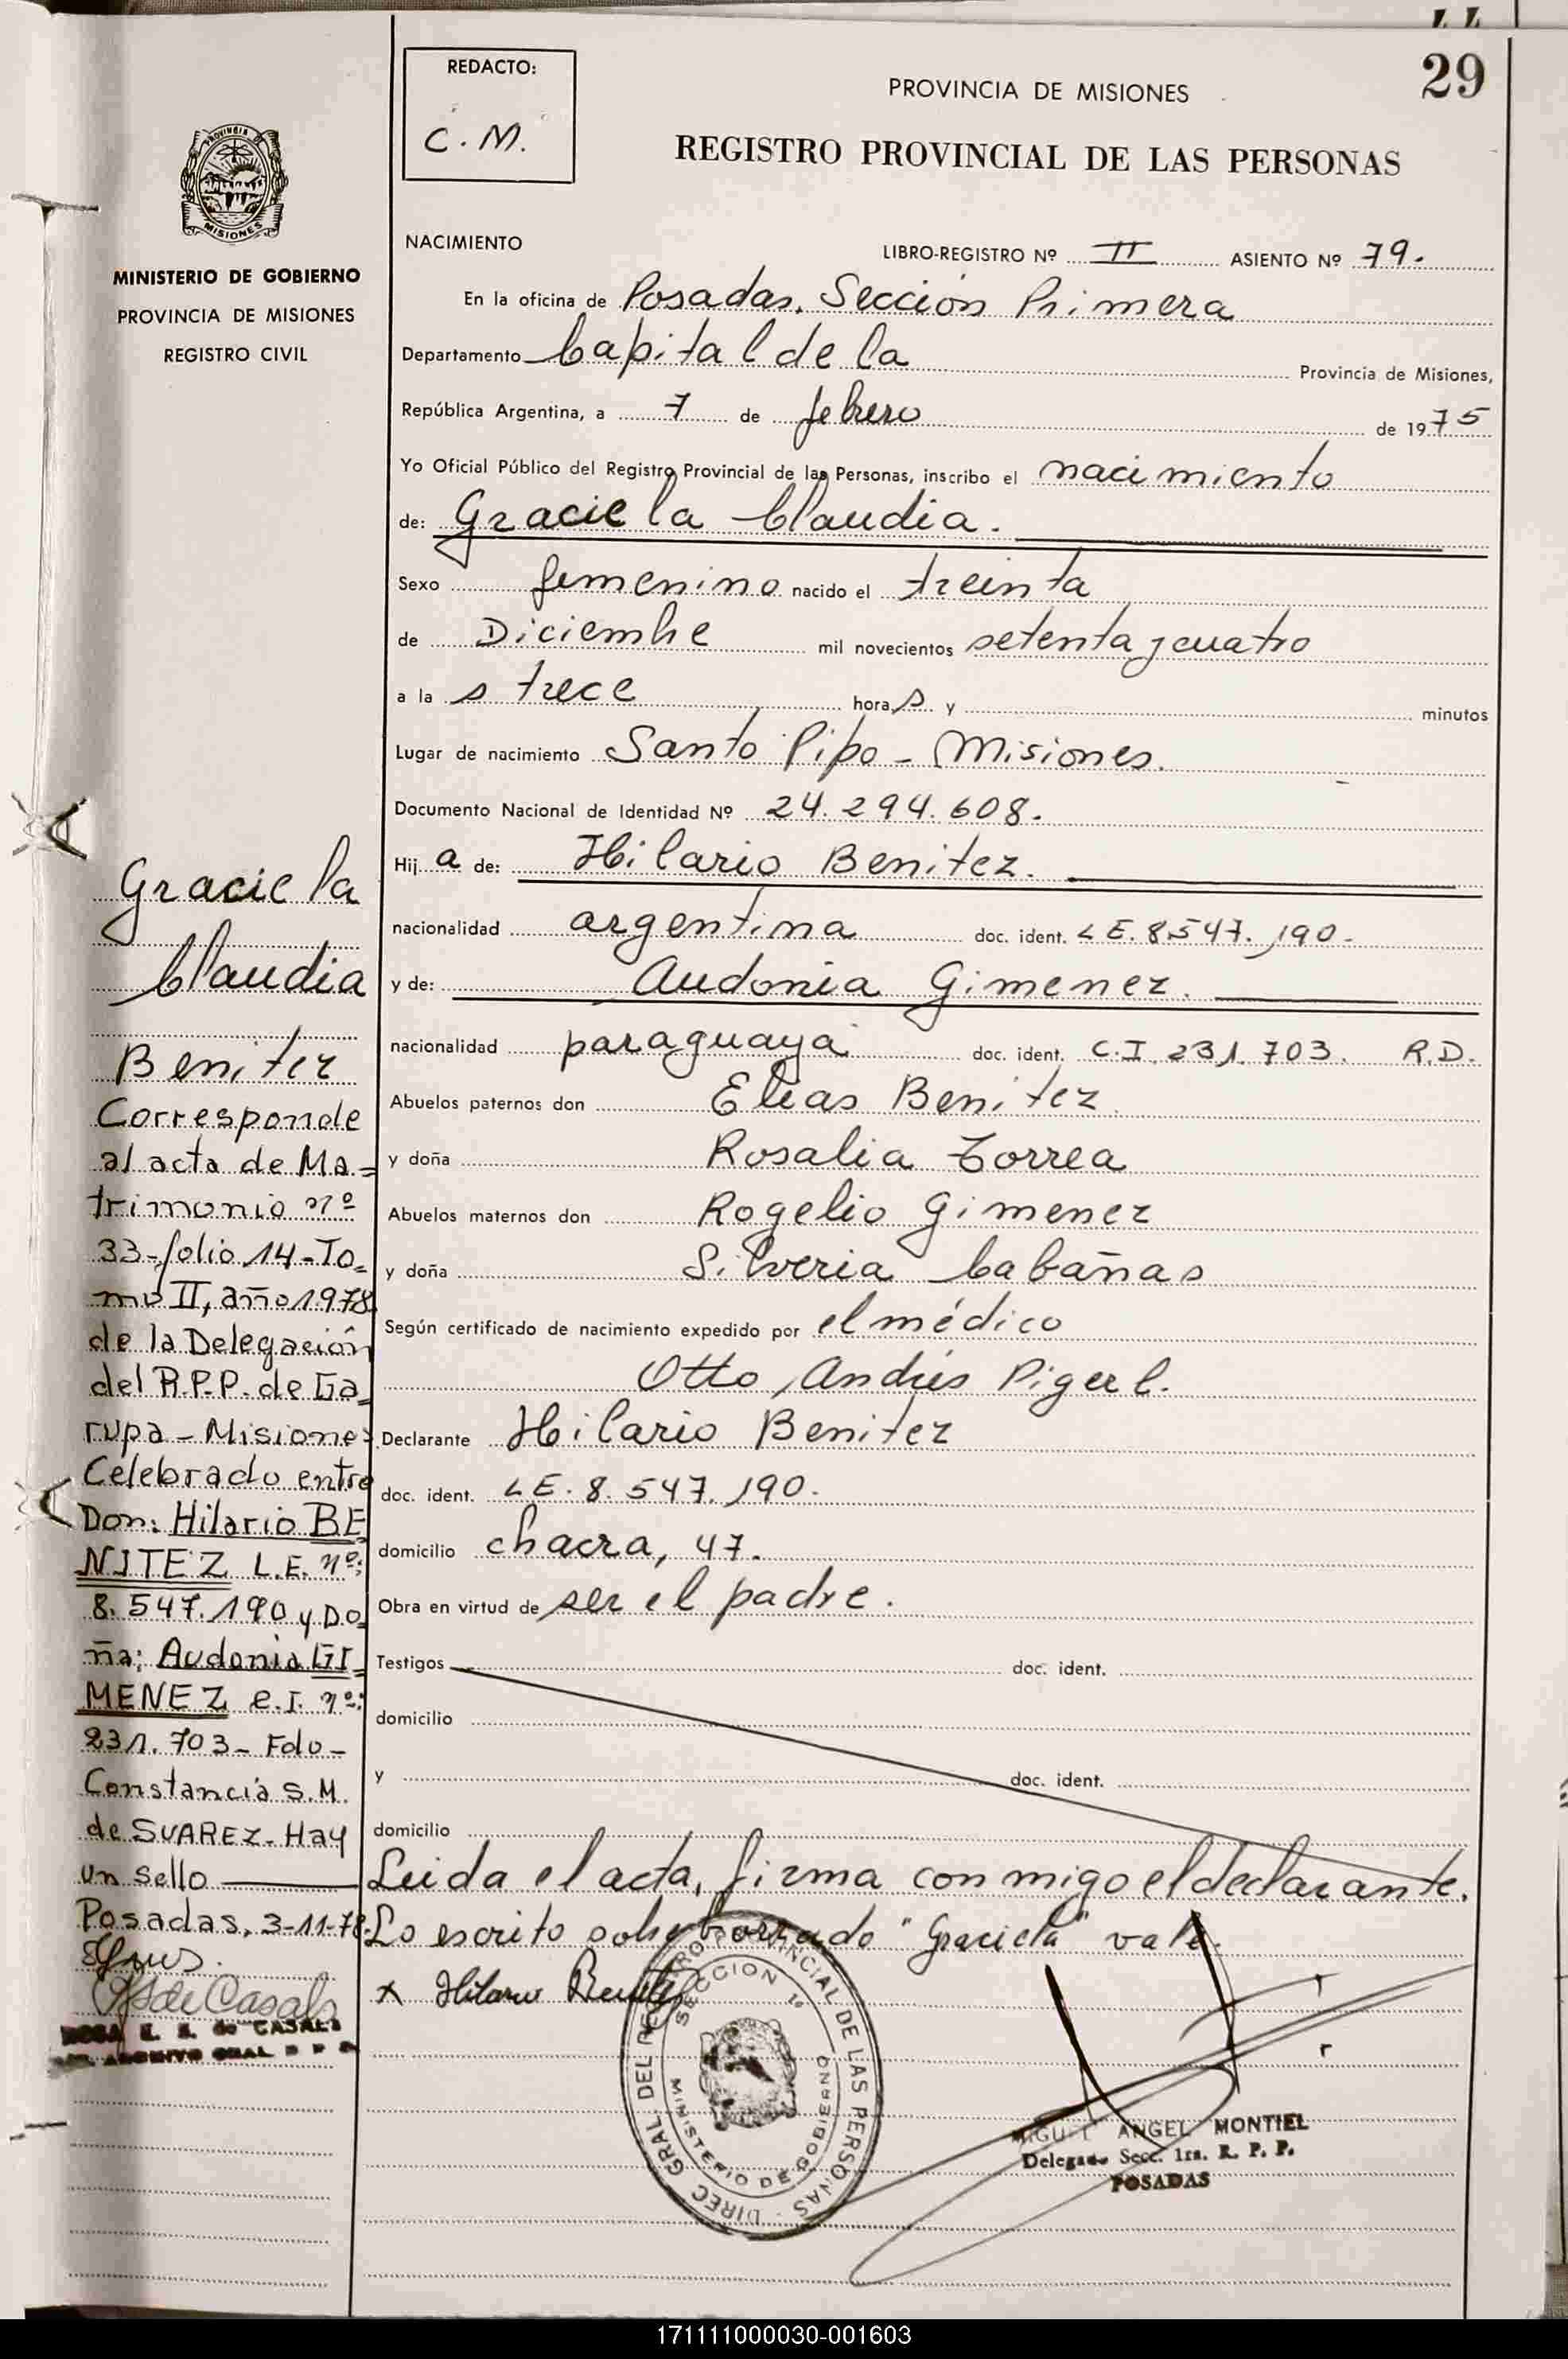 29
REDACTO:
C.M.
PROVINCIA DE MISIONES
REGISTRO PROVINCIAL DE LAS PERSONAS
PROVINCIA DE
MISIONES
MINISTERIO DE GOBIERNO
PROVINCIA DE MISIONES
REGISTRO CIVIL
NACIMIENTO LIBRO-REGISTRO Nº II ASIENTO Nº 79.
En la oficina de Posadas. Sección Primera
Departamento Capital de la Provincia de Misiones,
República Argentina, a 7 de febrero de 1975
Yo Oficial Público del Registro Provincial de las Personas, inscribo el nacimiento
de: Graciela Claudia.
Sexo femenino nacido el treinta
de Diciembre mil novecientos setenta y cuatro
a la s trece hora s y minutos
Lugar de nacimiento Santo Pipo - Misiones.
Documento Nacional de Identidad Nº 24.294.608.
Hij a de: Hilario Benitez.
nacionalidad argentina doc. ident. LE. 8.547.190.
y de: Audonia Gimenez.
nacionalidad paraguaya doc. ident. C.I. 231.703. R.D.
Abuelos paternos don Elias Benitez
y doña Rosalia Torrea
Abuelos maternos don Rogelio Gimenez
y doña Silveria Cabañas
Según certificado de nacimiento expedido por el médico
Otto Andrés Pigerl.
Declarante Hilario Benitez
doc. ident. LE. 8.547.190.
domicilio chacra, 47.
Obra en virtud de ser el padre.
Testigos doc. ident.
domicilio
y doc. ident.
domicilio
Leida el acta, firma conmigo el declarante.
Lo escrito sobre borrado "Graciela" vale.
x Hilario Benitez
DIREC. GRAL. DEL REGISTRO PROVINCIAL DE LAS PERSONAS
SECCION 1ª
MINISTERIO DE GOBIERNO
MIGUEL ANGEL MONTIEL
Delegado Secc. 1ra. R. P. P.
POSADAS
Graciela
Claudia
Benitez
Corresponde
al acta de Ma=
trimonio nº
33-folio 14-To=
mo II, año 1978
de la Delegación
del R.P.P. de Ga=
rupa - Misiones
Celebrado entre
Don: Hilario BE
NITEZ L.E. nº:
8.547.190 y Do=
ña: Audonia GI=
MENEZ C.I. nº:
231.703 - Fdo -
Constancia S.M.
de SUAREZ - Hay
un sello
Posadas, 3-11-78.
de Casals
ROSA E. S. de CASALS
ARCHIVO GRAL R P P
171111000030-001603